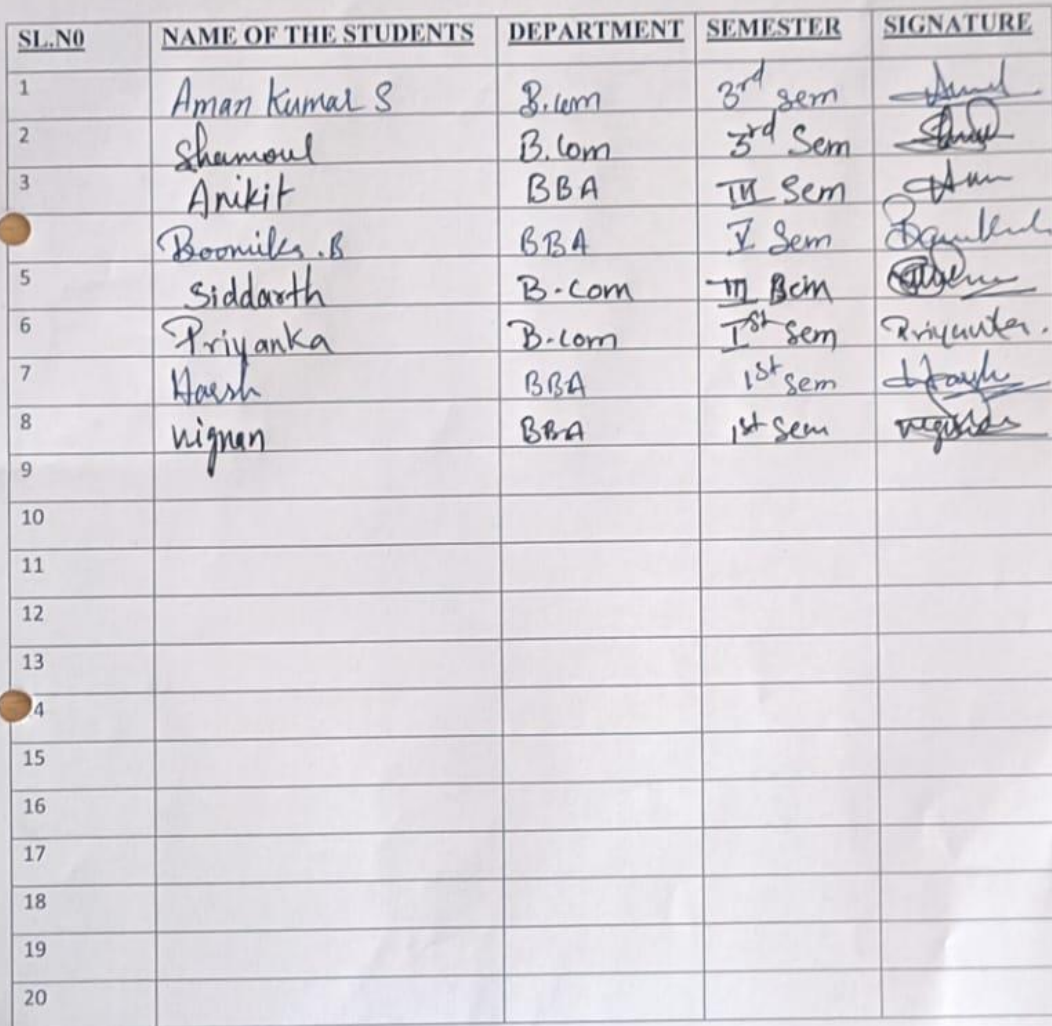 SL.N0 NAME OF THE STUDENTS DEPARTMENT SEMESTER SIGNATURE
1 Aman Kumar S B.com 3rd sem
2 Shamoul B.Com 3rd Sem
3 Anikit BBA III Sem
Boomika.B BBA V Sem
5 Siddarth B-com III Sem
6 Priyanka B-com Ist Sem Priyanka.
7 Harsh BBA 1st sem Harsh
8 vignan BBA 1st sem
9
10
11
12
13
4
15
16
17
18
19
20